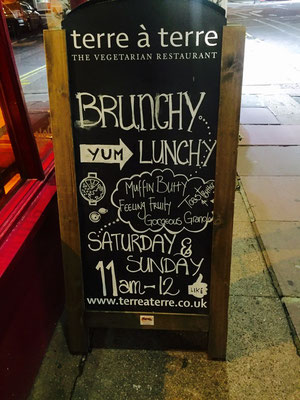 terre à terre
THE VEGETARIAN RESTAURANT
BRUNCHY
YUM LUNCHY
MUFFIN BUTTY
FEELING FRUITY
GORGEOUS GRANOLA
SATURDAY &
SUNDAY
11am-12
LIKE
www.terreaterre.co.uk